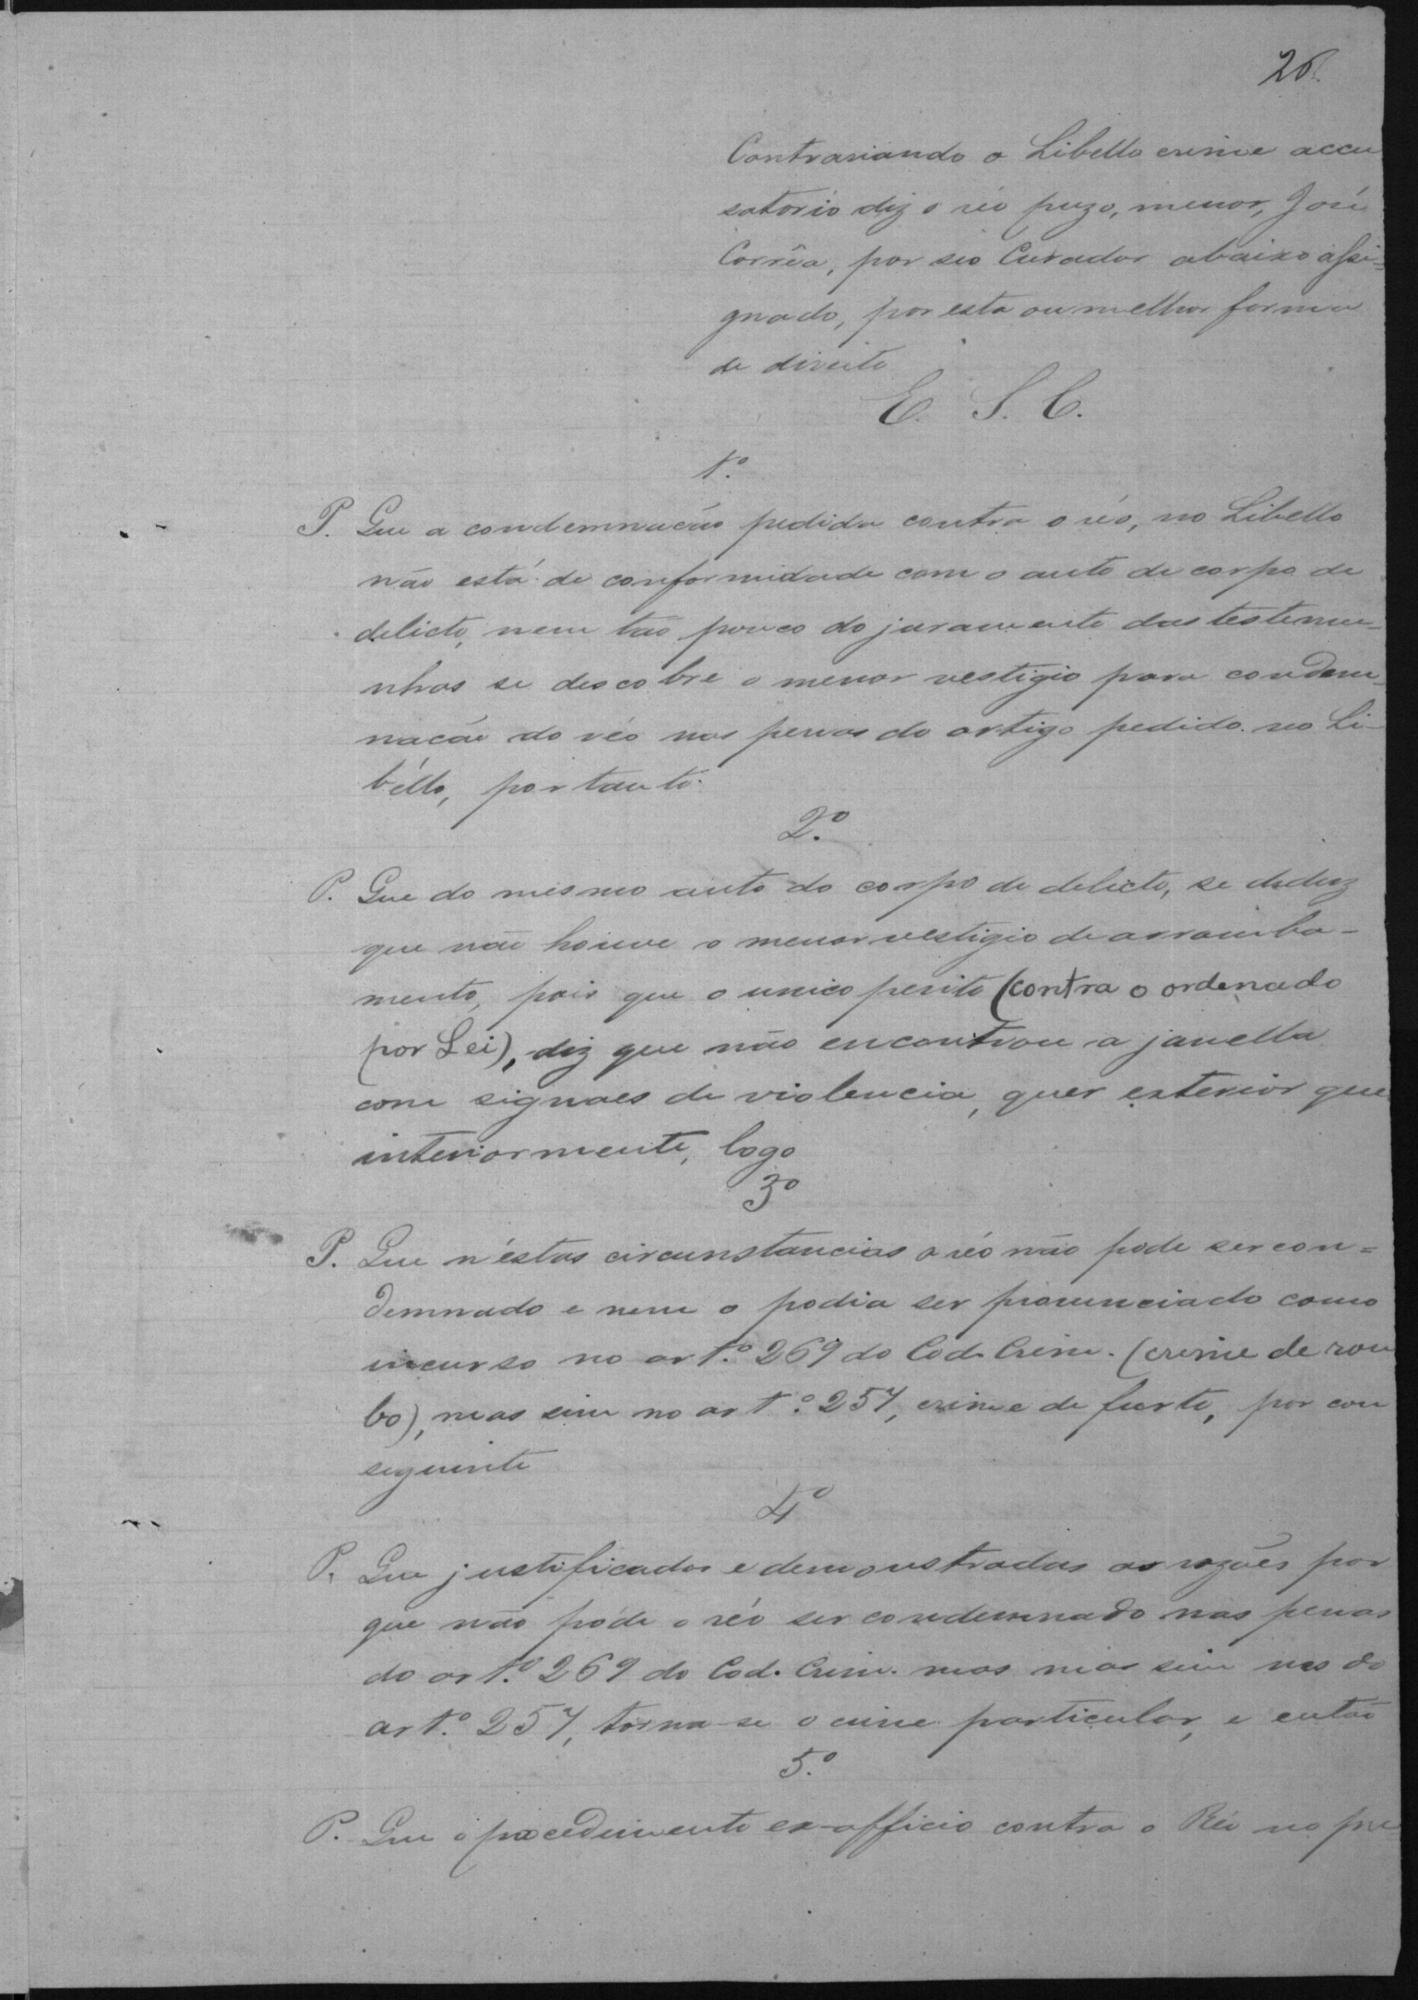 26.
Contrariando o Libello crime accu
satorio diz o réo prezo, menor, José
Corrêa, por seo Curador abaixo assi=
gnado, por esta ou melhor forma
de direito
E. S. C.
1.º
P. Que a condemnação pedida contra o réo, no Libello
não está de conformidade com o auto de corpo de
delicto, nem tão pouco do juramento das testemu-
nhas se descobre o menor vestigio para condem-
nação do réo nas penas do artigo pedido no Li-
béllo, portanto
2.º
P. Que do mesmo auto do corpo de delicto, se deduz
que não houve o menor vestigio de arromba-
mento, pois que o unico perito (contra o ordenado
por Lei), diz que não encontrou a janella
com signaes de violencia, quer exterior que
interiormente, logo
3º
P. Que n'éstas circunstancias o réo não pode ser con=
demnado e nem o podia ser pronunciado como
incurso no art.º 269 do Cod. Crim. (crime de rou
bo), mas sim no art.º 257, crime de furto, por con
seguinte
4º
P. Que justificados e demonstradas as razões por
que não póde o réo ser condemnado nas penas
do art.º 269 do Cod. Crim. mas mas sim nas do
art.º 257, torna-se o crime particular, e então
5.º
P. Que o procedimento ex-officio contra o Réo no pre